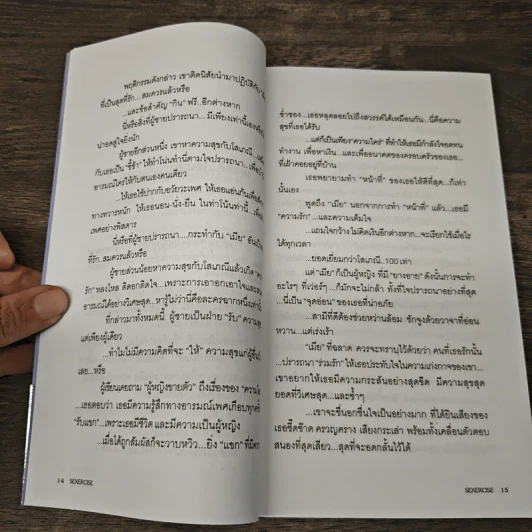 พฤติกรรมดังกล่าว เขาติดนิสัยนำมาปฏิบัติกับ
ที่เป็นสุดที่รัก...สมควรแล้วหรือ
...และข้อสำคัญ "กิน" ฟรี...อีกต่างหาก
นี่หรือสิ่งที่ผู้ชายปรารถนา... มีเพียงเท่านี้เอง
น่าอดสูใจยิ่งนัก
ผู้ชายอีกส่วนหนึ่ง เขาหาความสุขกับโสเภณี
กับเธอเป็น "ขี้ข้า" ให้ทำโน่นทำนี่ตามใจปรารถนา...
อารมณ์ใคร่ให้กับตนเองคนเดียว
...ให้เธอใช้ปากกับอวัยวะเพศ ให้เธอแอ่นก้น
ทางทวารหนัก ให้เธอนอน-นั่ง-ยืน ในท่าโน้นท่านี้
เพศอย่างพิสดาร
นี่หรือที่ผู้ชายปรารถนา....กระทำกับ "เมีย"
ที่รัก...สมควรแล้วหรือ
ผู้ชายส่วนน้อยหาความสุขกับโสเภณีแล้วเกิด
รัก" หลงใหล ติดอกติดใจ...เพราะการเอาอกเอาใจ
อารมณ์ได้อย่างวิเศษสุด...หารู้ไม่ว่านี่คือละครฉากหนึ่ง
ที่กล่าวมาทั้งหมดนี้ ผู้ชายเป็นฝ่าย "รับ"
แต่เพียงผู้เดียว
...ทำไมไม่มีความคิดที่จะ "ให้" ความสุขแก่ผู้อื่น
เลย...หรือ
ผู้เขียนเคยถาม "ผู้หญิงขายตัว" ถึงเรื่องของ
...เธอตอบว่า เธอมีความรู้สึกทางอารมณ์เพศเกือบทุกครั้ง
"รับแขก"...เพราะเธอมีชีวิต และมีความเป็นผู้หญิง
...เมื่อได้ถูกสัมผัสก็จะวาบหวิว...ยิ่ง "แขก"
14 SEXERCISE
ช่ำชอง...เธอหลุดลอยไปถึงสวรรค์ได้เหมือนกัน...นี่คือความ
สุขที่เธอได้รับ
...แต่ก็เป็นเพียง"ความใคร่" ที่ทำให้เธอมีกำลังใจอดทน
ทำงาน เพื่อหาเงิน...และเพื่ออนาคตของครอบครัวของเธอ...
ที่เฝ้าคอยอยู่ที่บ้าน
เธอพยายามทำ "หน้าที่" ของเธอให้ดีที่สุด...ก็เท่า
นั้นเอง
พูดถึง "เมีย" นอกจากการทำ "หน้าที่" แล้ว...เธอมี
"ความรัก" ...และความเต็มใจ
...แถมใจกว้าง ไม่คิดเงินอีกต่างหาก...จะเรียกใช้เมื่อไร
ได้ทุกเวลา
...ยอดเยี่ยมกว่าโสเภณี...100 เท่า
แต่ "เมีย"ก็เป็นผู้หญิง ที่มี "ยางอาย" ดังนั้นการจะทำ
อะไรๆ ที่เว่อร์ๆ ...ก็มักจะไม่กล้า ทั้งที่ใจปรารถนาอย่างที่สุด
...นี่เป็น "จุดอ่อน" ของเธอที่น่าอภัย
...สามีที่ดีต้องช่วยหว่านล้อม ชักจูงด้วยวาจาที่อ่อน
หวาน...แต่เร่งเร้า
"เมีย" ที่ฉลาด ควรจะทราบไว้ด้วยว่า คนที่เธอรักนั้น
...ปรารถนา "ร่วมรัก" ให้เธอประทับใจในความเก่งกาจของเขา...
เขาอยากให้เธอมีความกระสันอย่างสุดขีด มีความสุขสุด
ยอดที่วิเศษสุด...และซ้ำๆ
...เขาจะชื่นอกชื่นใจเป็นอย่างมาก ที่ได้ยินเสียงของ
เธอซี้ดซ้าด ครวญคราง เสียงกระเส่า พร้อมทั้งเคลื่อนตัวตอบ
สนองที่สุดเสียว...สุดที่จะอดกลั้นไว้ได้
SEXERCISE 15